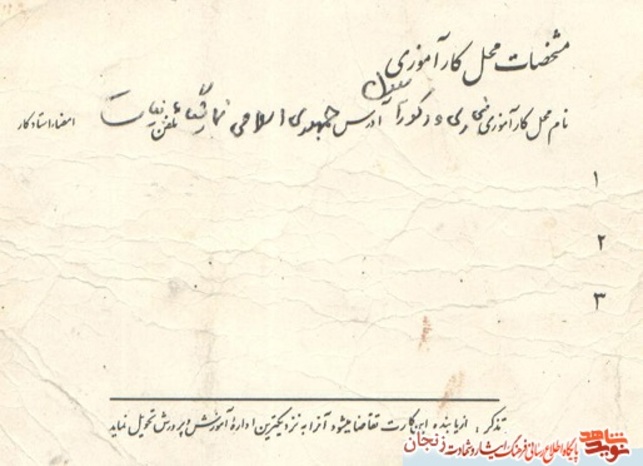 مشخصات محل کارآموزی
نام محل کارآموزی آدرس جمهوری اسلامی تلفن امضاء استاد کار
۱
۲
۳
تذکر : از یابنده این کارت تقاضا میشود آنرا به نزدیکترین اداره آموزش و پرورش تحویل نماید
نوید شاهد
پایگاه اطلاع رسانی فرهنگ ایثار و شهادت زنجان